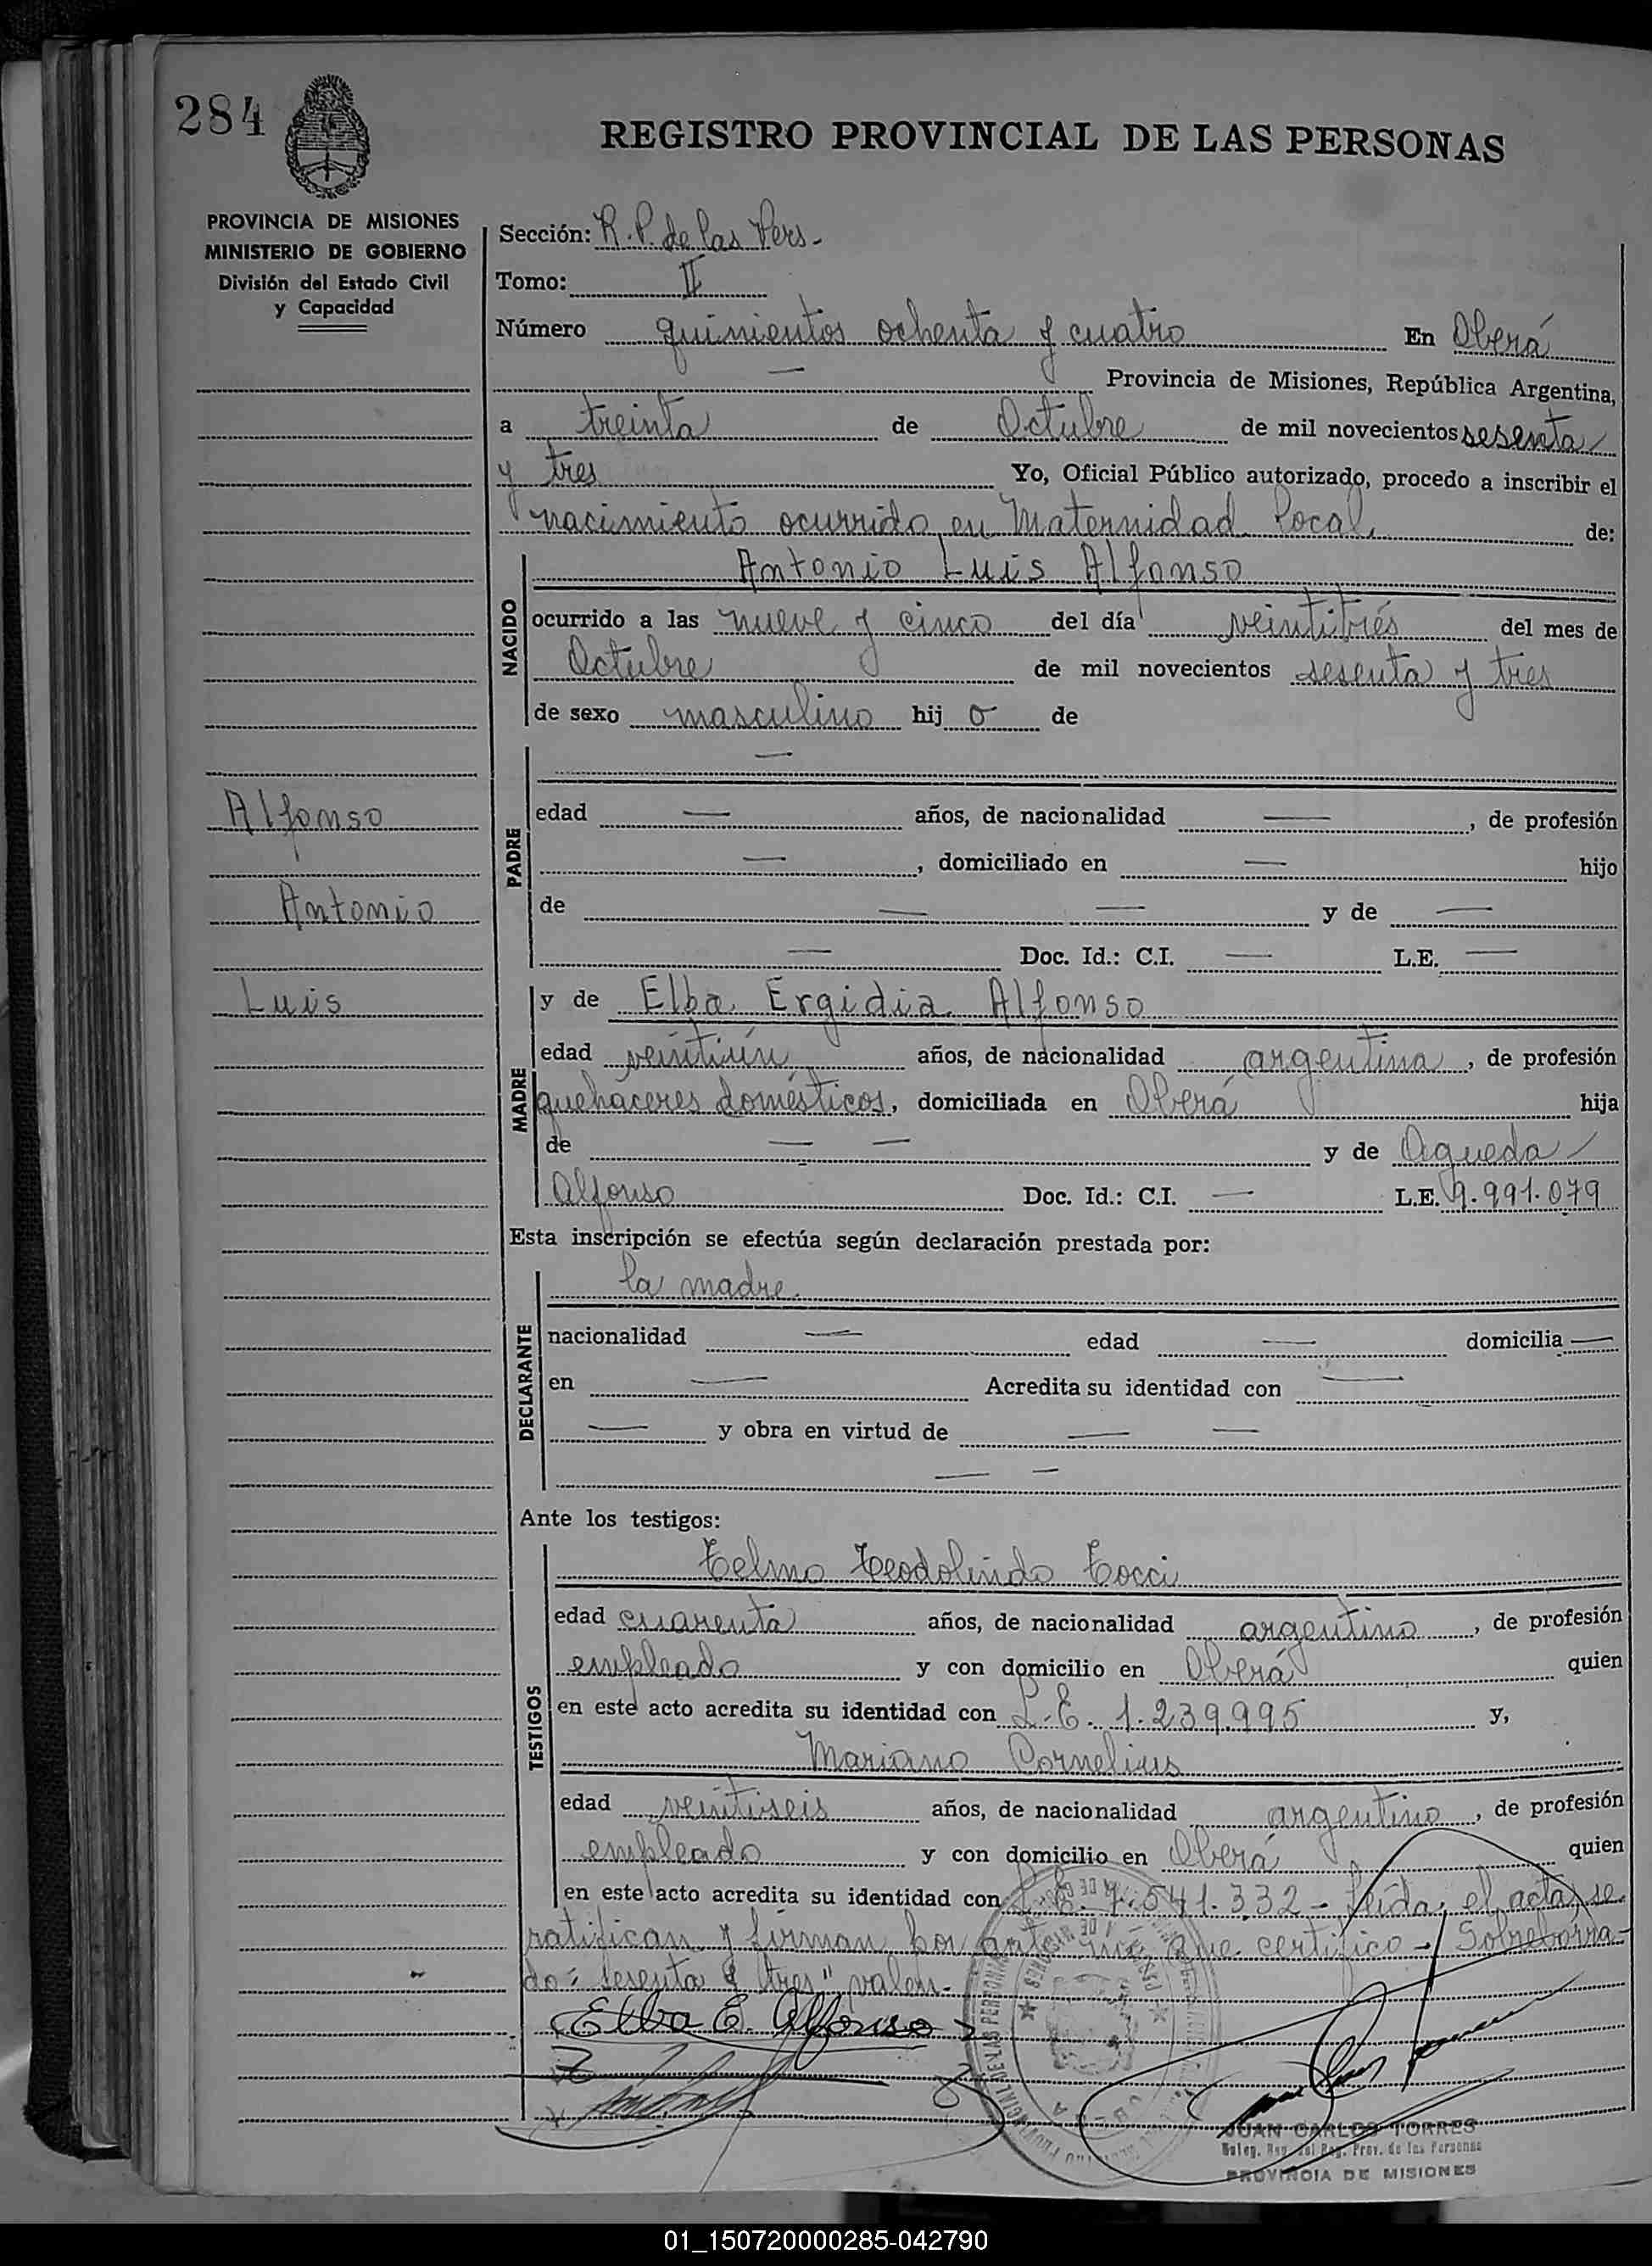 284
REGISTRO PROVINCIAL DE LAS PERSONAS
PROVINCIA DE MISIONES
MINISTERIO DE GOBIERNO
División del Estado Civil
y Capacidad
Sección: R. P. de las Pers.
Tomo: II
Número quinientos ochenta y cuatro En Oberá
— Provincia de Misiones, República Argentina,
a treinta de Octubre de mil novecientos sesenta
y tres Yo, Oficial Público autorizado, procedo a inscribir el
nacimiento ocurrido en Maternidad Local, de:
NACIDO
Antonio Luis Alfonso
ocurrido a las nueve y cinco del día veintitrés del mes de
Octubre de mil novecientos sesenta y tres
de sexo masculino hij o de
Alfonso
Antonio
Luis
PADRE
—
edad — años, de nacionalidad —, de profesión
—, domiciliado en — hijo
de — — y de —
— Doc. Id.: C.I. — L.E. —
MADRE
y de Elba Ergidia Alfonso
edad veintiún años, de nacionalidad argentina, de profesión
quehaceres domésticos, domiciliada en Oberá hija
de — — y de Agueda
Alfonso Doc. Id.: C.I. — L.E. 9.991.079
Esta inscripción se efectúa según declaración prestada por:
DECLARANTE
la madre.
nacionalidad — edad — domicilia —
en — Acredita su identidad con —
— y obra en virtud de — —
— —
Ante los testigos:
TESTIGOS
Telmo Teodolindo Tocci
edad cuarenta años, de nacionalidad argentino, de profesión
empleado y con domicilio en Oberá quien
en este acto acredita su identidad con L.E. 1.239.995 y,
Mariano Cornelius
edad veintiseis años, de nacionalidad argentino, de profesión
empleado y con domicilio en Oberá quien
en este acto acredita su identidad con L.E. 7.541.332 - Leída el acta, se
ratifican y firman por ante mí que certifico - Sobreborra-
do: "sesenta y tres" valen.-
Elba E. Alfonso
JUAN CARLOS TORRES
Reg. Prov. de las Personas
PROVINCIA DE MISIONES
01_150720000285-042790